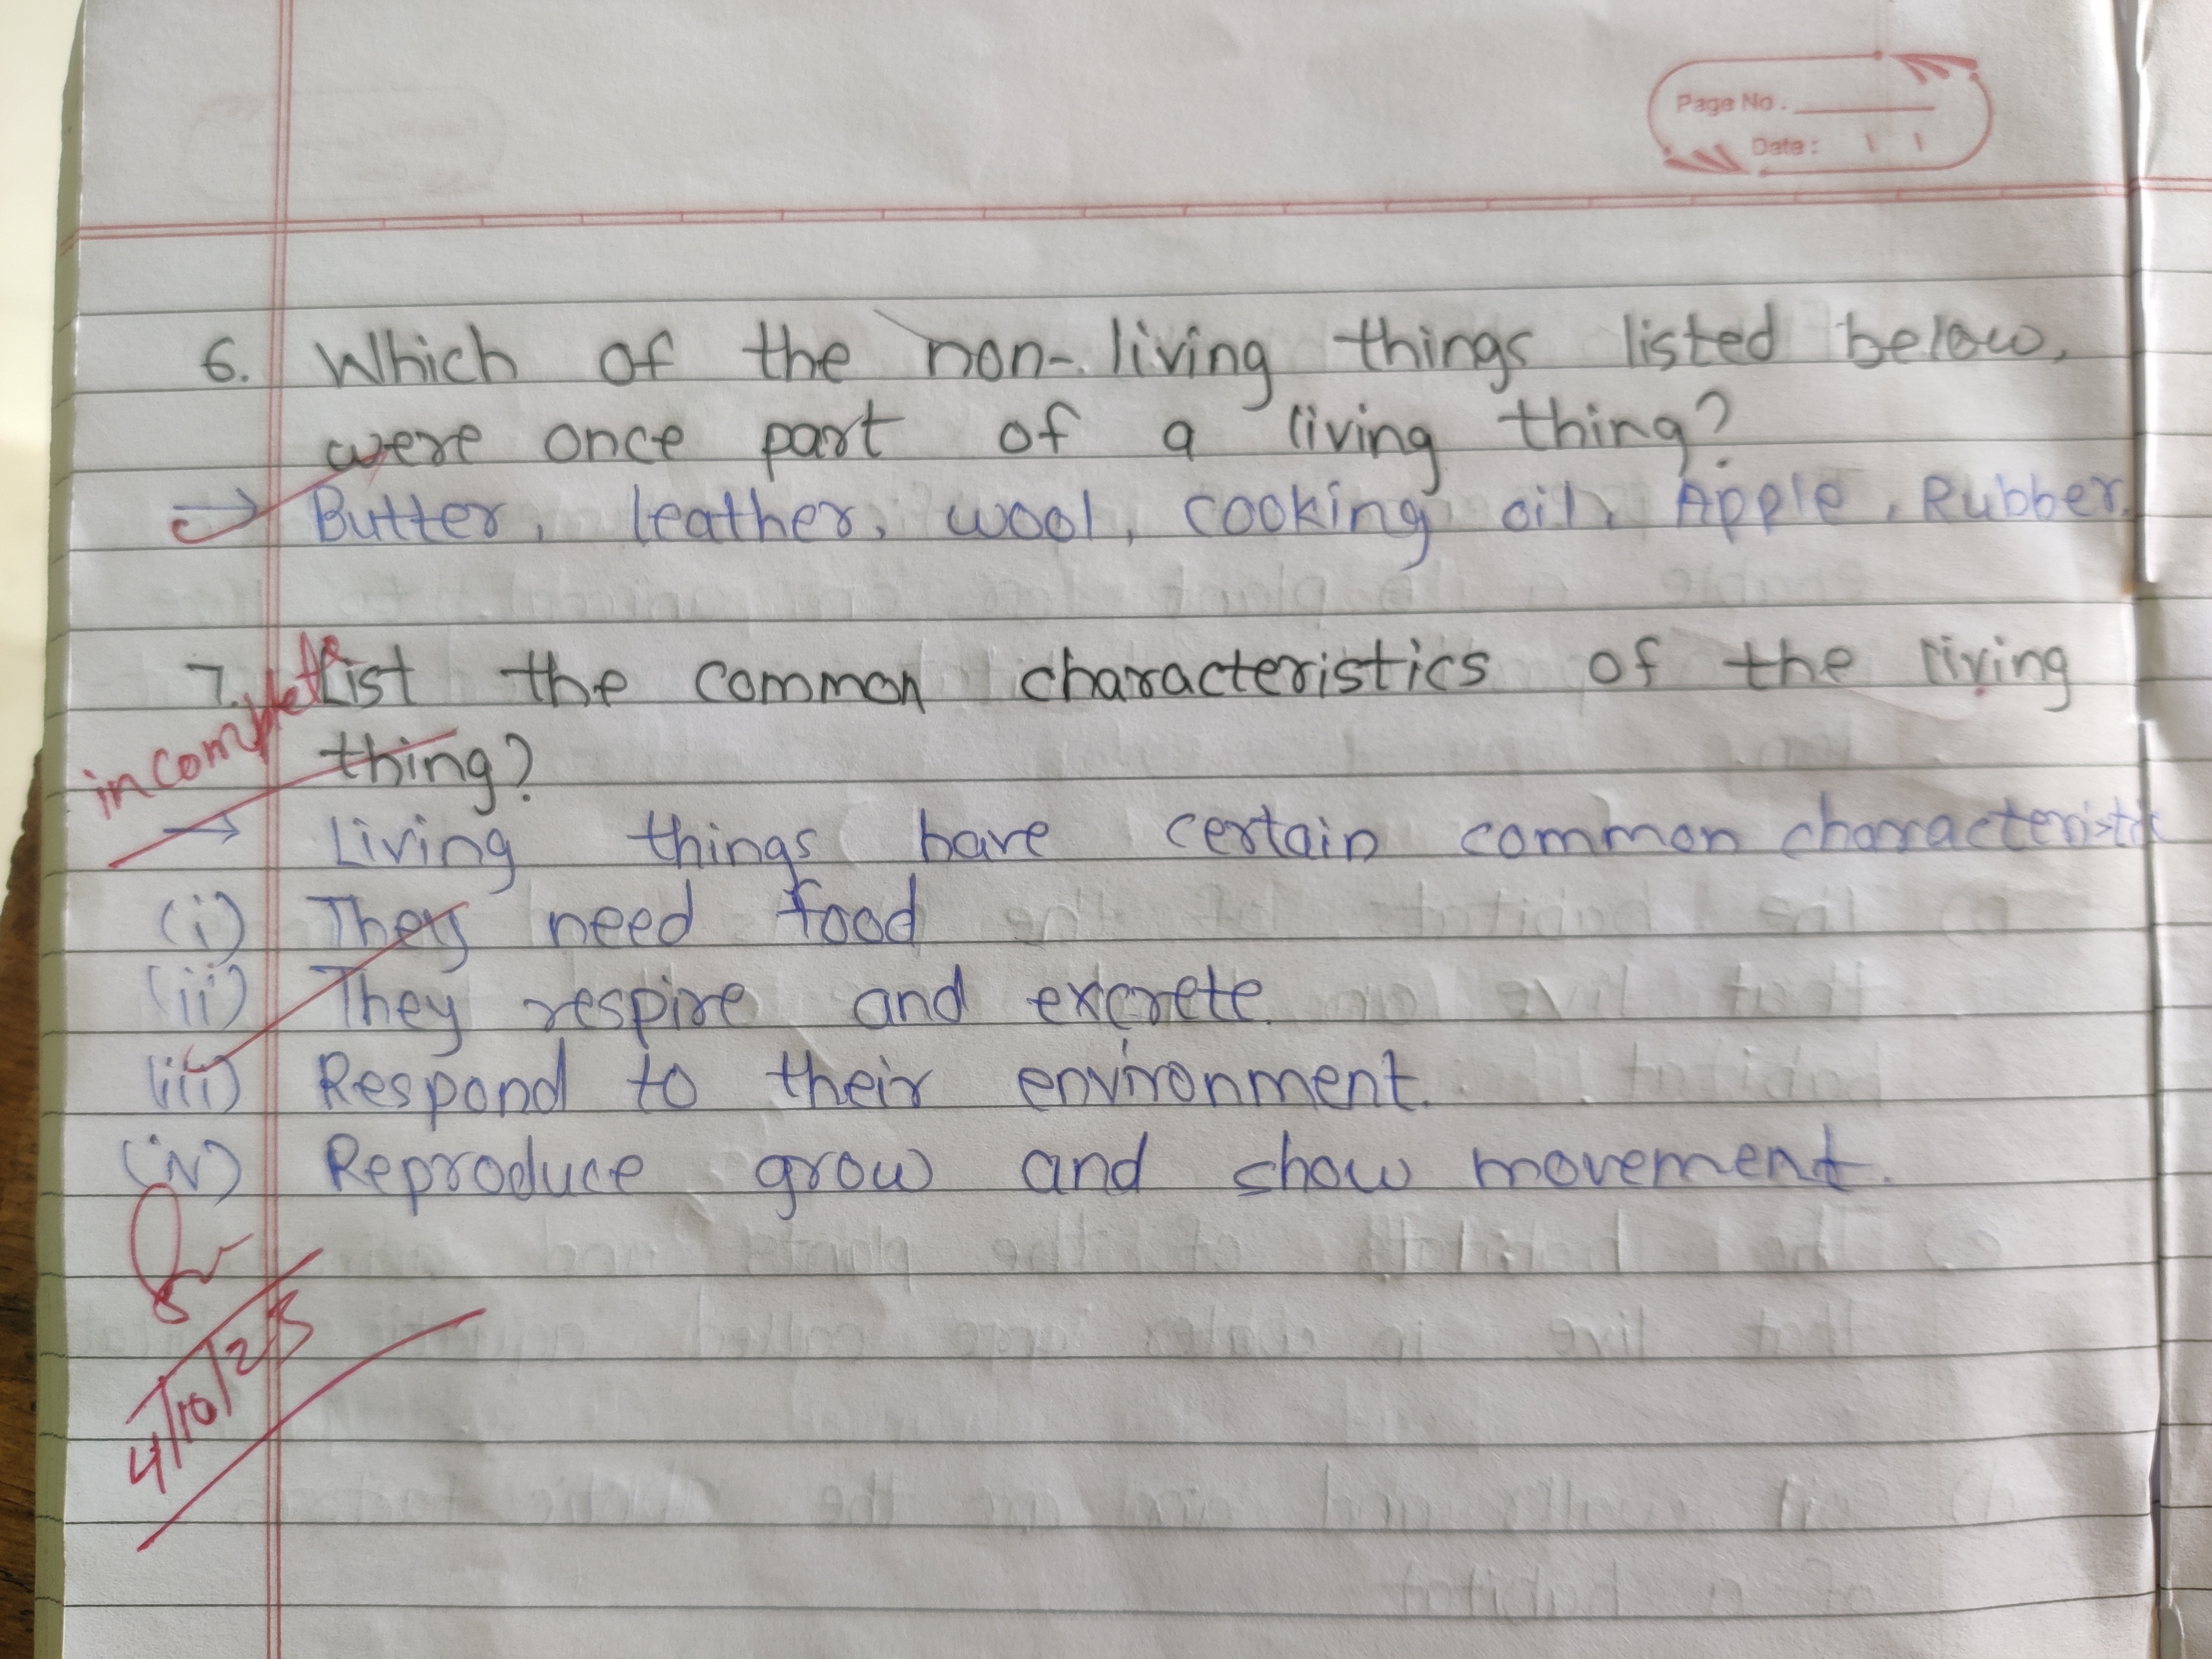 Page No.
Date:
6. Which of the non-living things listed below,
were once part of a living thing?
→ Butter, leather, wool, cooking oil, Apple, Rubber.
incomplete
7. List the common characteristics of the living
thing?
→ Living things have certain common characteristic
(i) They need food
(ii) They respire and excrete.
(iii) Respond to their environment.
(iv) Reproduce grow and show movement.
4/10/25